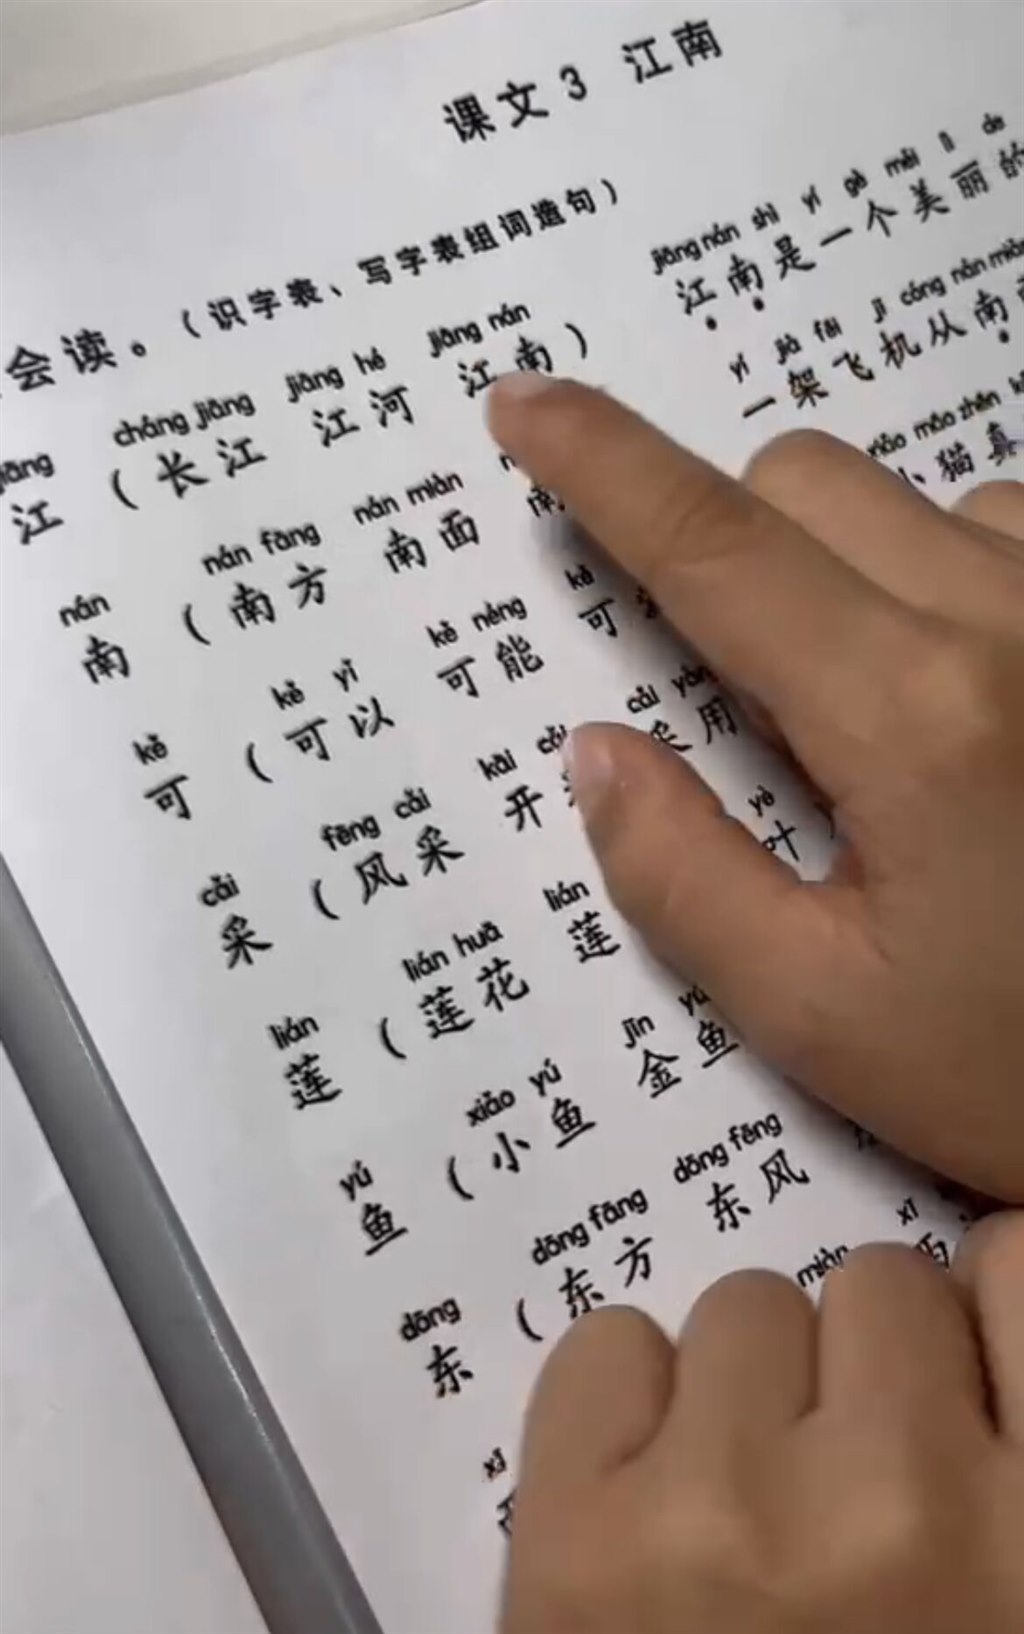 课文3 江南
会读。（识字表、写字表组词造句）
jiāng cháng jiāng jiāng hé jiāng nán
江（长江 江河 江南）
nán nán fāng nán miàn
南（南方 南面 南
kě kě yǐ kě néng kě
可（可以 可能 可
cǎi fēng cǎi kāi cǎi cǎi yòng
采（风采 开 采用
lián lián huā lián yè
莲（莲花 莲 叶
yú xiǎo yú jīn yú
鱼（小鱼 金鱼
dōng dōng fāng dōng fēng
东（东方 东风
xī miàn xī
西
jiāng nán shì yí gè měi lì de
江南是一个美丽的
yí jià fēi jī cóng nán miàn
一架飞机从南
xiǎo māo zhēn
小猫真